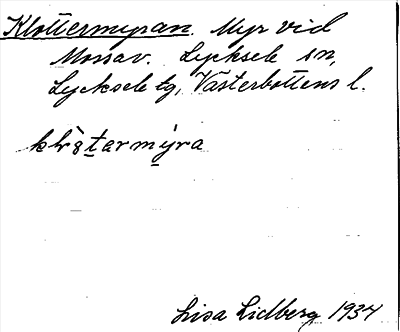 Klottermyran. Myr vid
Mossav. Lycksele sn,
Lycksele tg, Västerbottens l.
klò̀tarmýra
Lisa Lidberg 1934